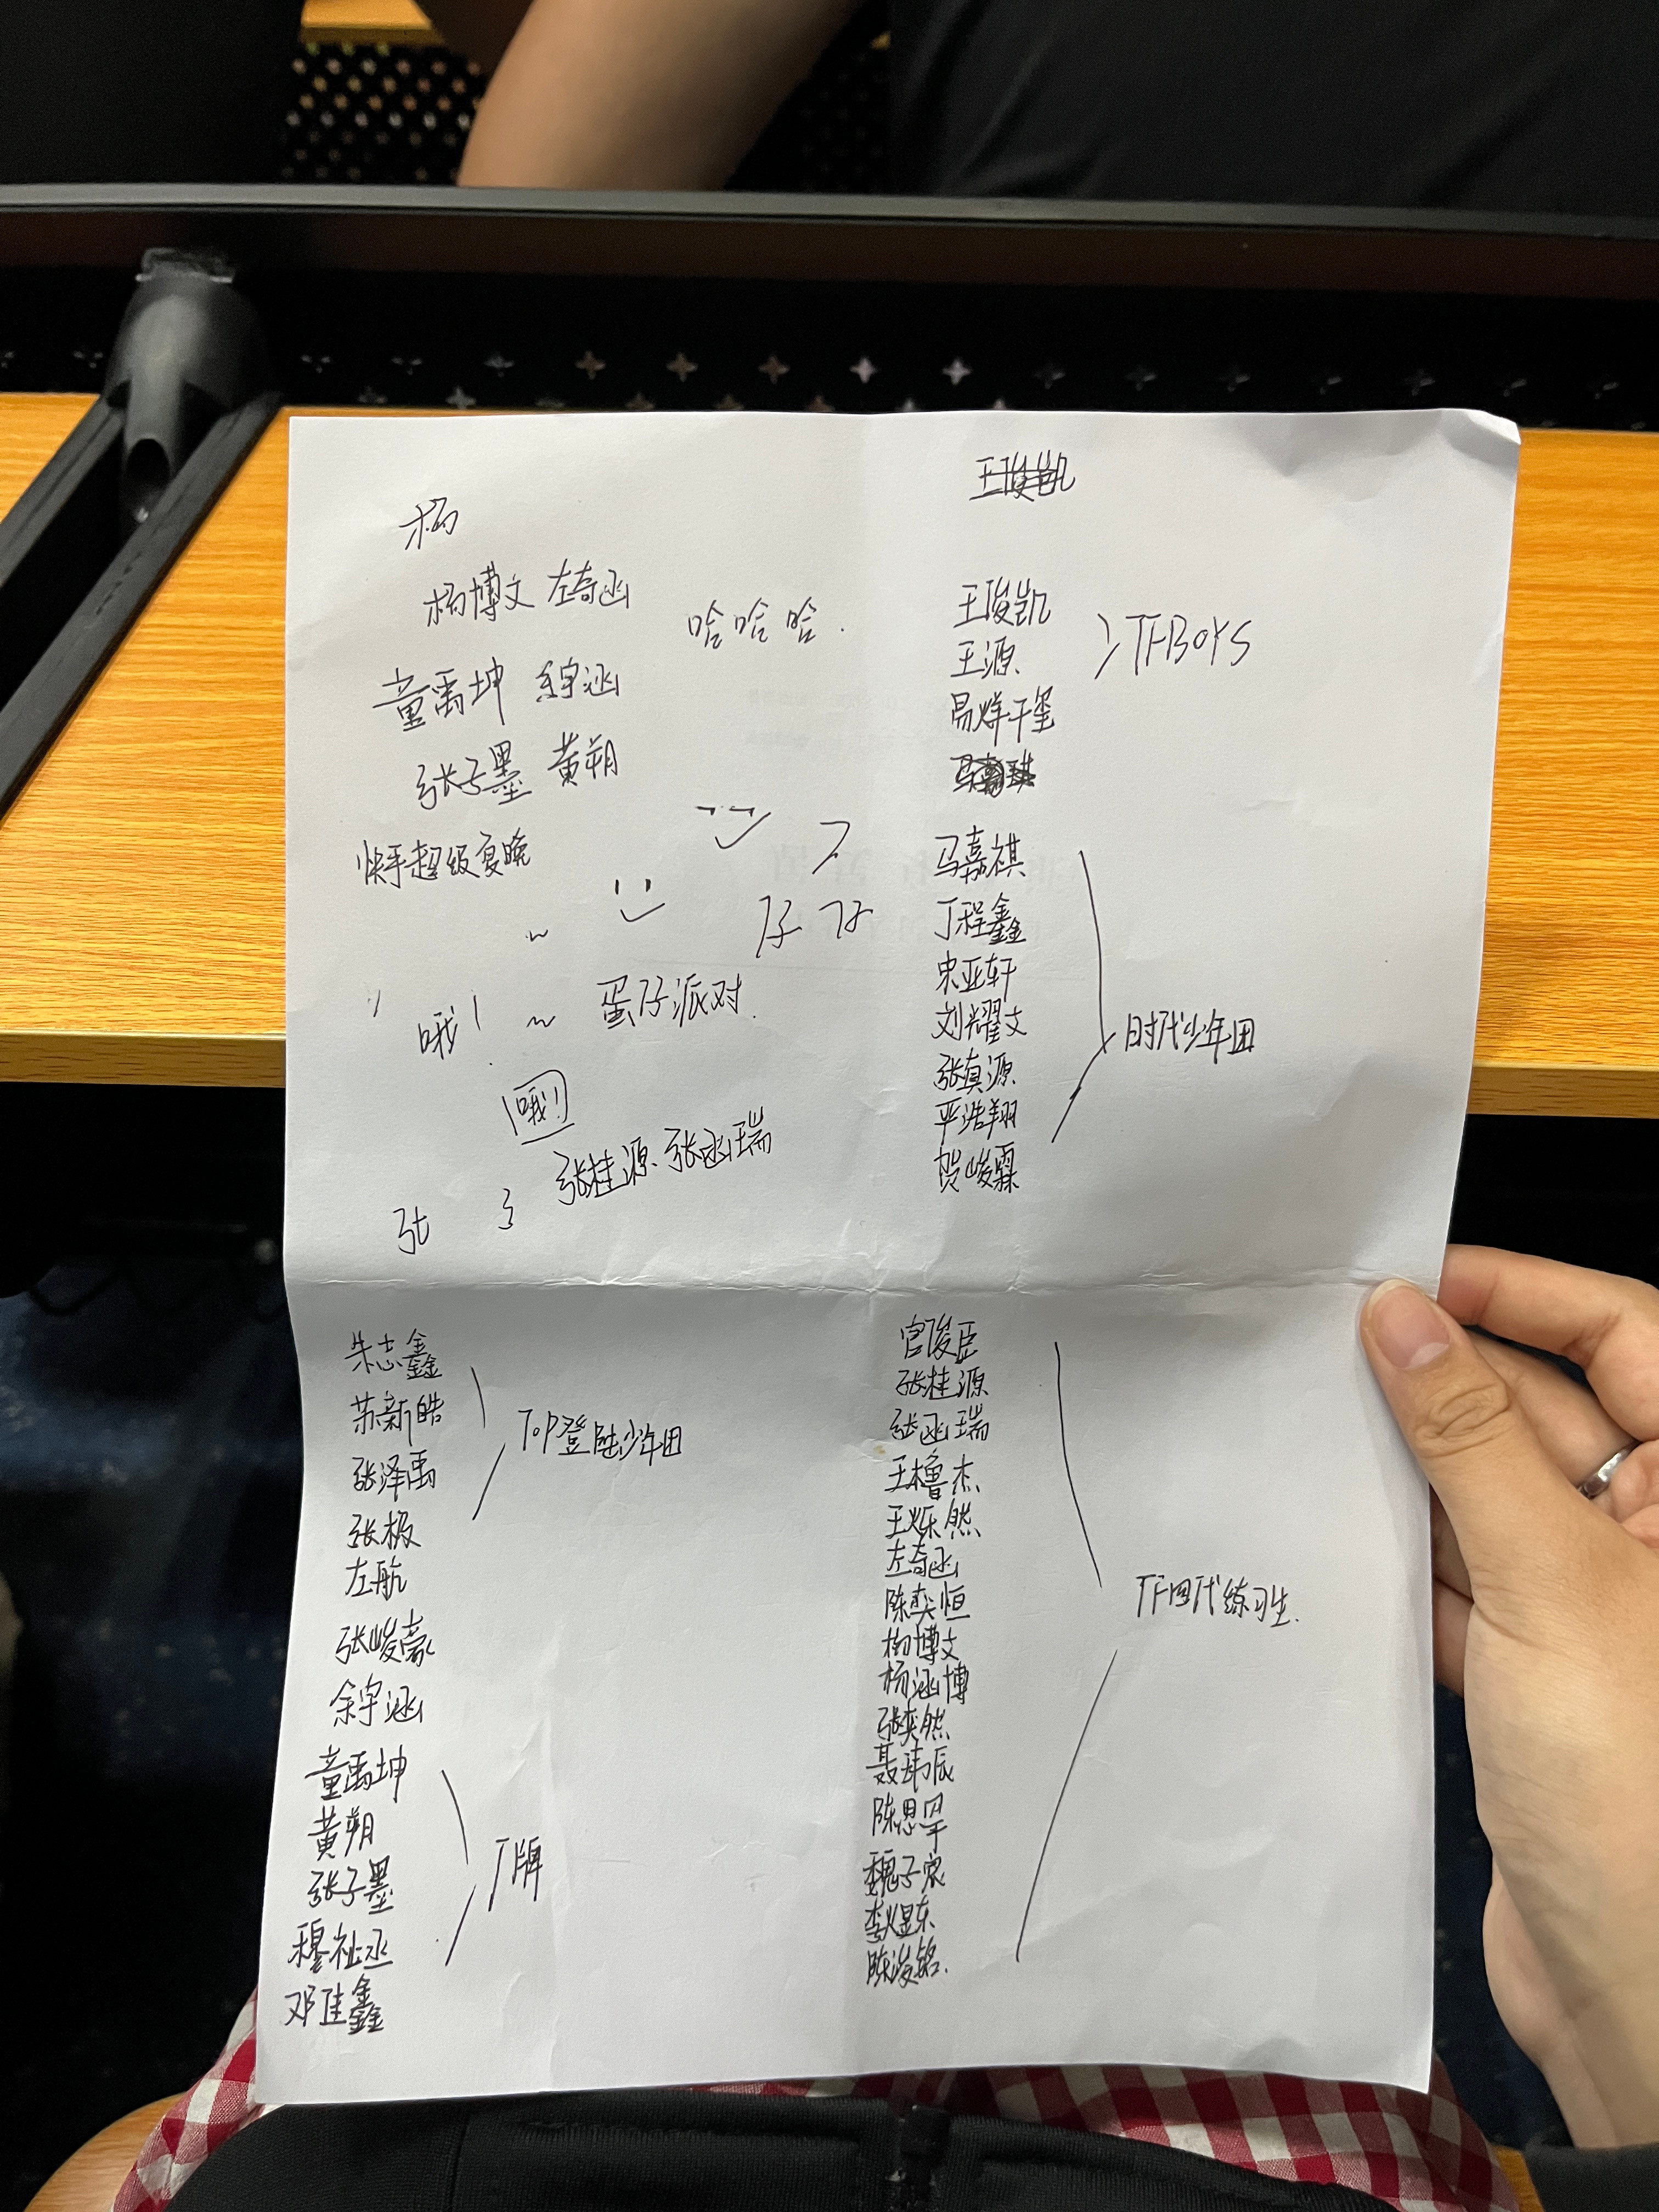 杨
杨博文 左奇函
哈哈哈.
童禹坤 余宇涵
张子墨 黄朔
快手超级夜晚
蛋仔派对.
哦!
哦!
张桂源 张函瑞
张
王俊凯
王俊凯
王源
易烊千玺
TFBOYS
马嘉祺
丁程鑫
宋亚轩
刘耀文
张真源
严浩翔
贺峻霖
时代少年团
朱志鑫
苏新皓
张泽禹
张极
左航
TOP登陆少年团
张峻豪
余宇涵
童禹坤
黄朔
张子墨
穆祉丞
邓佳鑫
丁牌
官俊臣
张桂源
张函瑞
王橹杰
王烁然
左奇函
陈奕恒
杨博文
杨涵博
张奕然
聂玮辰
陈思罕
魏子宸
李煜东
陈浚铭.
TF四代练习生.